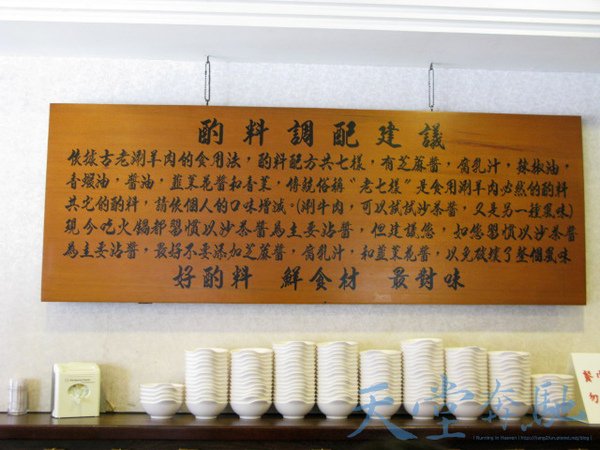 酌料調配建議
依據古老涮羊肉的食用法，酌料配方共七樣，有芝蔴醬，腐乳汁，辣椒油，
青蝦油，醬油，韮菜花醬和香菜，傳統俗稱"老七樣"是食用涮羊肉必然的酌料
的酌料，請依個人的口味增減。(涮牛肉，可以試試沙茶醬，又是另一種風味)
現今吃火鍋都習慣以沙茶醬為主要沾醬，但建議您，如您習慣以沙茶醬
為主要沾醬，最好不要添加芝蔴醬，腐乳汁，和韮菜花醬，以免破壞了整個風味
好酌料 鮮食材 最對味
天堂奔馳
| Running in Heaven |